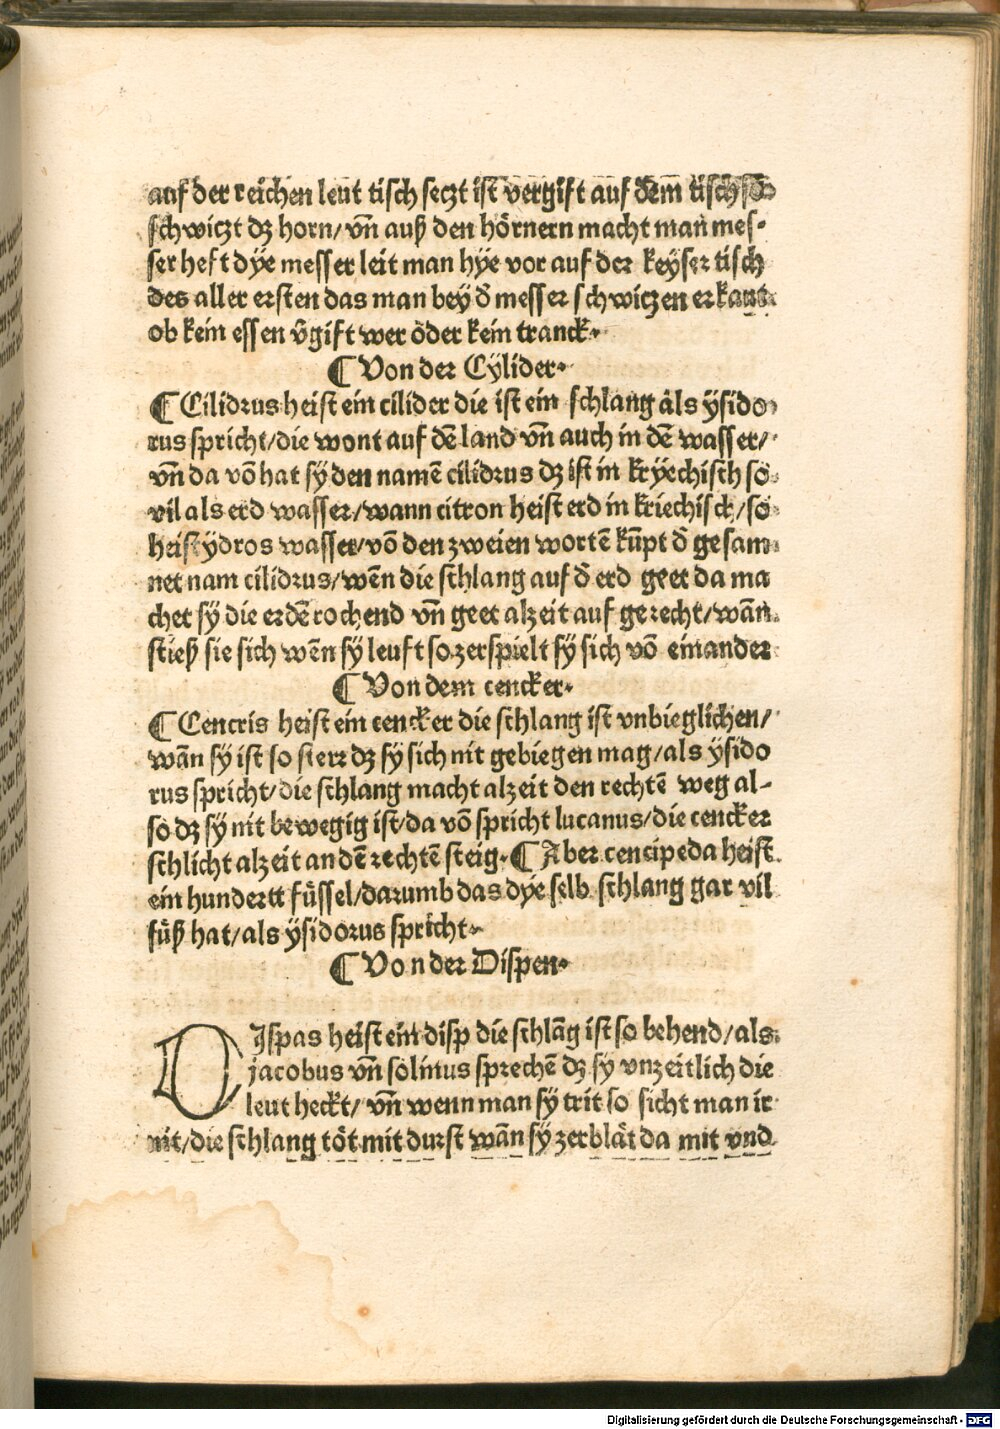 auf der reichen leut tisch seczt ist vergift auf dem tisch so
schwiczt dz horn/ vn̄ auß den hörnern macht man mes⸗
ser heft dÿe messer leit man hÿe vor auf der keÿser tisch
des aller ersten das man beÿ d̄ messer schwiczen erkant
ob kein essen v̄gift wer öder kein tranck.
¶ Von der Cÿlider.
¶ Cilidrus heist ein cilider die ist ein schlang als ÿsido
rus spricht/die wont auf dē land vn̄ auch in dē wasser/
vn̄ da vō hat sÿ den namē cilidrus dz ist in krÿechisch so
vil als erd wasser/wann citron heist erd in kriechisch/so
heist ÿdros wasser/vō den zweien wortē kūpt d̄ gesam
net nam cilidrus/wēn die schlang auf d̄ erd geet da ma
chet sÿ die erdē rochend vn̄ geet alzeit auf gerecht/wān
stieß sie sich wēn sÿ leuft so zerspielt sÿ sich vō einander
¶ Von dem cencker.
¶ Cencris heist ein cencker die schlang ist vnbieglichen/
wān sÿ ist so sterr dz sÿ sich nit gebiegen mag/als ÿsido
rus spricht/die schlang macht alzeit den rechtē weg al-
so dz sÿ nit bewegig ist/da vō spricht lucanus/die cencker
schlicht alzeit an dē rechtē steig. ¶ Aber cencipeda heist
ein hundertt füssel/darumb das dÿe selb schlang gar vil
füß hat/als ÿsidorus spricht.
¶ Von der Dispen.
DIspas heist ein disp die schlāg ist so behend/als
jacobus vn̄ solinus sprechē dz sÿ vnzeitlich die
leut heckt/ vn̄ wenn man sÿ trit so sicht man ir
nit/die schlang töt mit durst wān sÿ zerblät da mit vnd
Digitalisierung gefördert durch die Deutsche Forschungsgemeinschaft - DFG